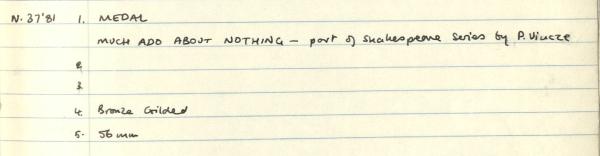 N.37'81 1. MEDAL
MUCH ADO ABOUT NOTHING – part of Shakespeare series by P. Vincze
2.
3.
4. Bronze Gilded
5. 56 mm